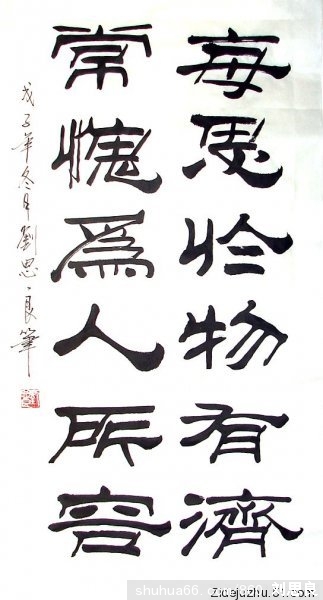 每思於物有濟
常愧爲人所容
戊子年冬月劉思良筆
Zidejuzhu.51.com
shuhua66. 刘思良